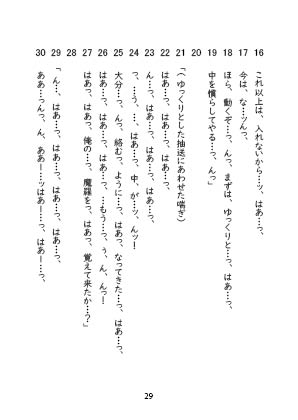 16 これ以上は、入れないから…ッ、はあ…っ、
17 今は、な…ッんっ、
18 ほら、動くぞ…っ、んっ、まずは、ゆっくりと…っ、はあっ、
19 中を慣らしてやる…っ、んっ」
20
21 「(ゆっくりとした抽送にあわせた喘ぎ)
22 はあ…っ、はあ…っ、はあ…っ、
23 ん…っ、はあ…っ、はあ…っ、はあ…っ、
24 っ、…う、…、はあ…っ、中、が…ッ、んッ!
25 大分…っ、ん、絡む、ように…っ、はあっ、なってきた…っ、はあっ、
26 はあ…っ、はあ…っ、はあ…っ、…もう…っ、う、ん、んっ!
27 はあっ、はあっ、俺の…っ、魔羅をっ、はあっ、覚えて来たか…っ?」
28
29 「ん…、はあ…っ、はあ…っ、はあ…っ、はあ…っ、
30 ああ…っんっ、ん、ああ!…ッはあ!…っ、はあ!…っ、
29